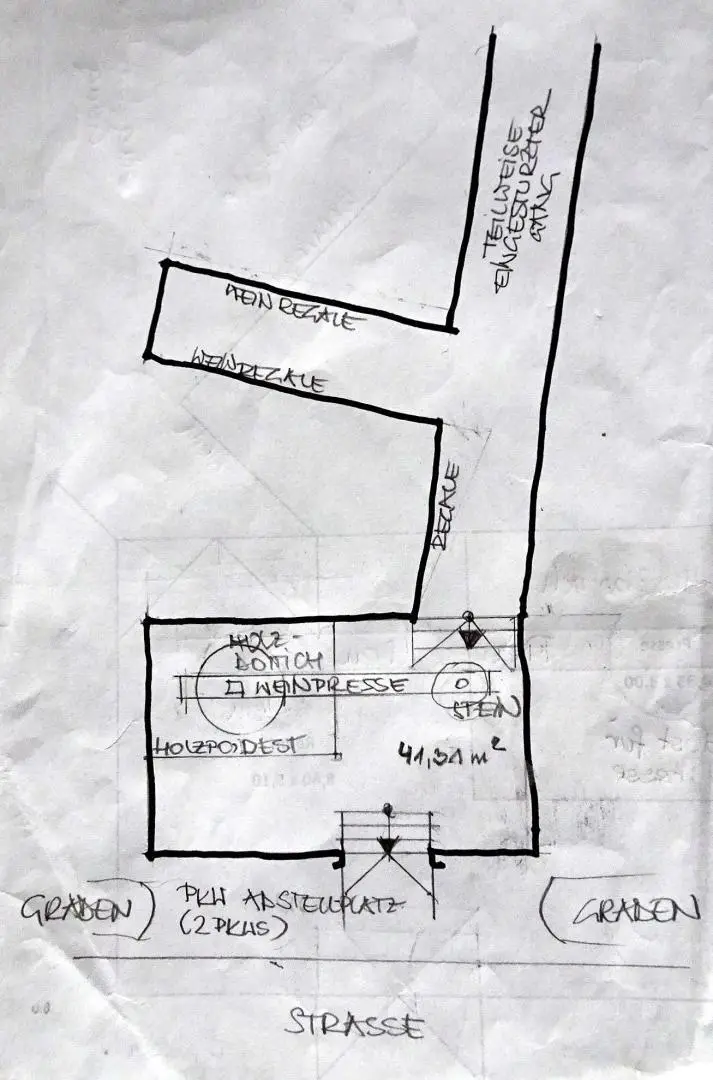 TEILWEISE
EINGESTÜRZTER
GANG
WEINREGALE
WEINREGALE
REGALE
HOLZ-
BOTTICH
WEINPRESSE
STEIN
HOLZPODEST
41,31 m²
GRABEN
PKW ABSTELLPLATZ
(2 PKWS)
GRABEN
STRASSE